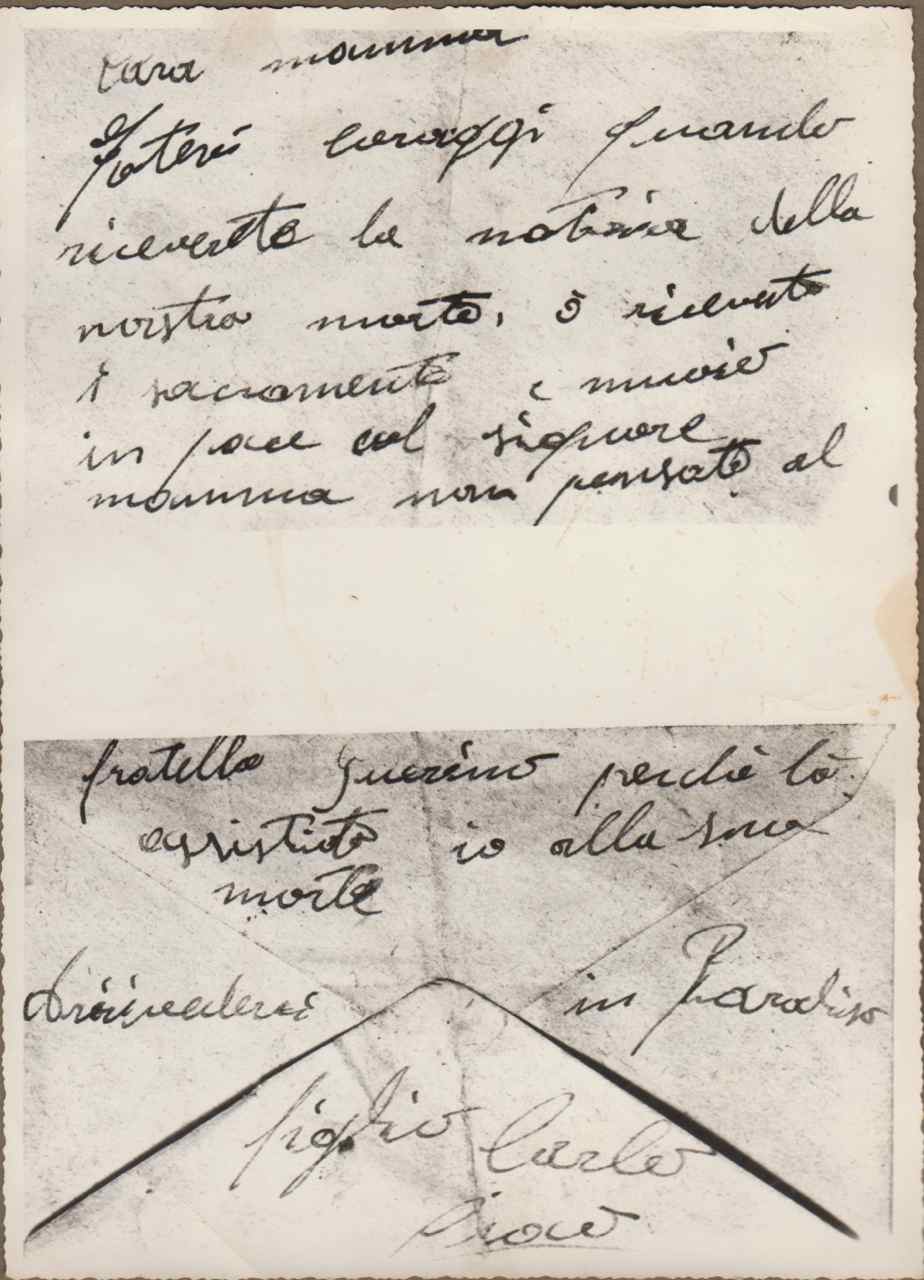 Cara mamma
Fatevi coraggi quando
riceverete la notizia della
nostra morte, ò ricevuto
i sacramente e muoio
in pace col signore
mamma non pensate al
fratello Guerino perchè lò
assistito io alla sua
morte
Arrivederci in Paradiso
figlio Carlo